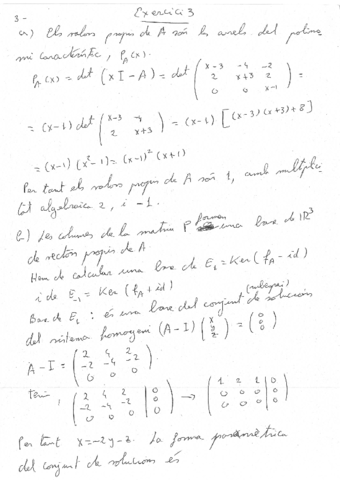 Exercici 3
3-
a) Els valors propis de A són les arrels del polino-
mi característic, P_A(x).
P_A(x) = det (x I - A) = det ( x-3 -4 -2 ; 2 x+3 2 ; 0 0 x-1 ) =
= (x-1) det ( x-3 -4 ; 2 x+3 ) = (x-1) [ (x-3)(x+3)+8 ]
= (x-1) (x²-1) = (x-1)² (x+1)
Per tant els valors propis de A són 1, amb multiplici
tat algebraica 2, i -1.
Les columnes de la matriu P formen una base de IR³
de vectors propis de A.
Hem de calcular una base de E₁ = Ker ( f_A - id )
i de E₋₁ = Ker ( f_A + id )
(subespai)
Base de E₁ : és una base del conjunt de solucions
del sistema homogeni (A-I) ( x ; y ; z ) = ( 0 ; 0 ; 0 )
A-I = ( 2 4 2 ; -2 -4 -2 ; 0 0 0 )
( 2 4 2 | 0 ; -2 -4 -2 | 0 ; 0 0 0 | 0 ) → ( 1 2 1 | 0 ; 0 0 0 | 0 ; 0 0 0 | 0 )
Per tant x = -2y - z. La forma paramètrica
del conjunt de solucions és